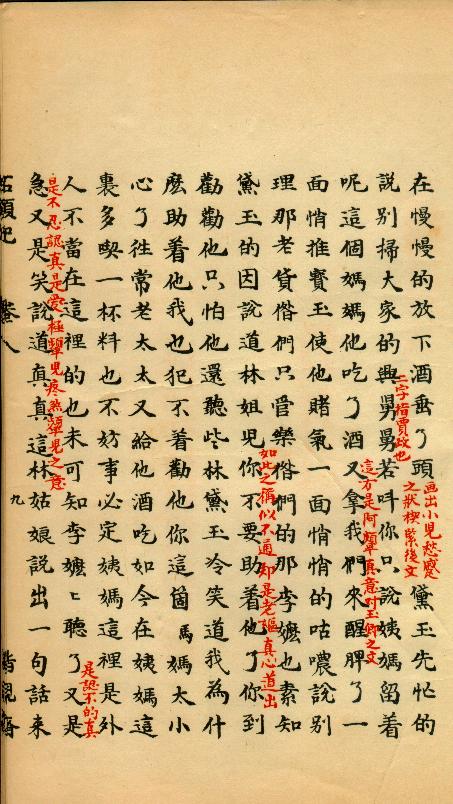 在慢慢的放下酒垂了頭黛玉先忙的
画出小児愁蹙之狀楔緊後文
説别掃大家的興舅舅若呌你只説姨媽留着
二字指賈政也
呢這個媽媽他吃了酒又拿我們來醒脾了一
這方是阿顰真意对玉卿之文
面悄推寳玉使他賭氣一面悄悄的咕噥説别
理那老貨偺們只管樂偺們的那李嬷也素知
黛玉的因説道林姐児你不要助着他了你到
如此之稱似不通却是老嫗真心道出
勸勸他只怕他還聽些林黛玉冷笑道我為什
麽助着他我也犯不着勸他你這箇媽媽太小
心了徃常老太太又給他酒吃如今在姨媽這
裏多喫一杯料也不妨事必定姨媽這裡是外
人不當在這裡的也未可知李嬷〻聽了又是
是認不的真
急又是笑説道真真這林姑娘説出一句話来
是不忍認真是愛極顰児疼煞顰児之意
石頭記
九
脂硯齋